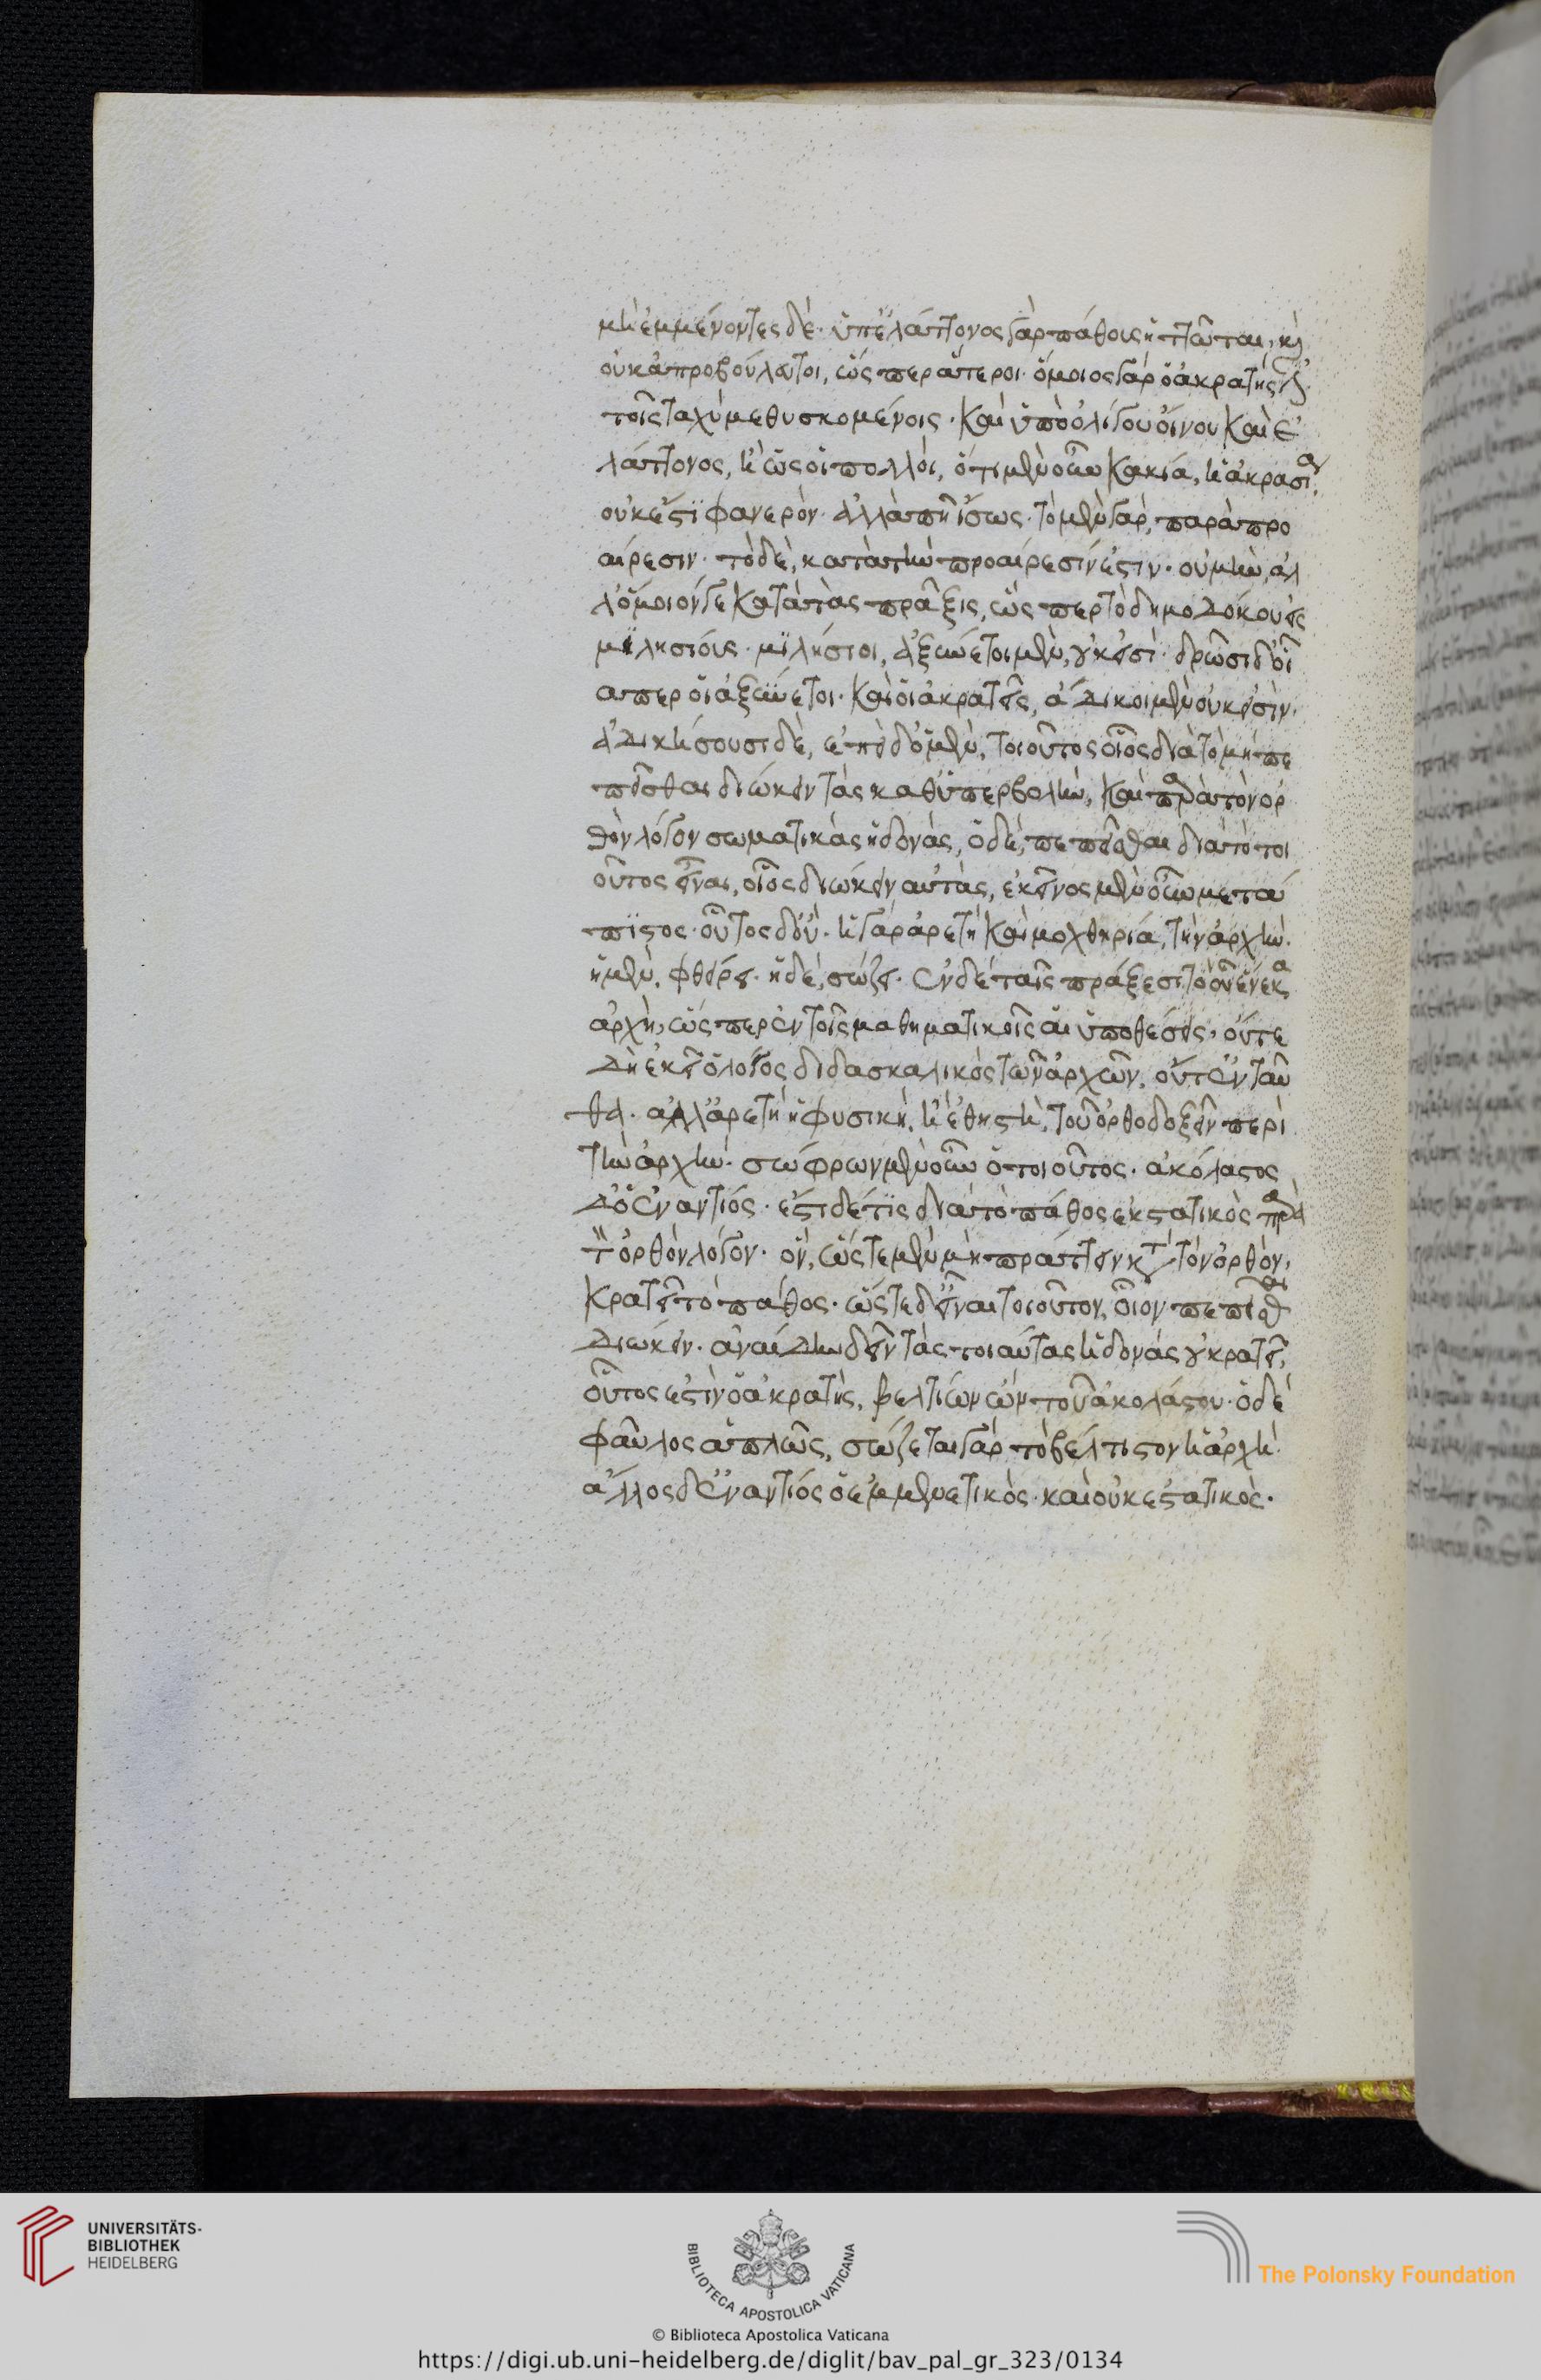 μὴ ἐμμένοντες δέ· ὑπ' ἐλάττονος γὰρ πάθους ἡττῶνται, καὶ
οὐκ ἀπροβούλευτοι, ὥσπερ ἅτεροι· ὅμοιος γὰρ ὁ ἀκρατής ἐστι
τοῖς ταχὺ μεθυσκομένοις· καὶ ὑπὸ ὀλίγου οἴνου καὶ ἐ
λάττονος, ἢ ὡς οἱ πολλοί, ὅτι μὲν οὖν κακία, ἡ ἀκρασία
οὐκ ἔστι φανερόν· ἀλλὰ πῇ ἴσως· τὸ μὲν γὰρ, παρὰ προ
αίρεσιν· τὸ δὲ, κατὰ τὴν προαίρεσίν ἐστιν· οὐ μὴν, ἀλ
λ' ὅμοιόν γε κατὰ τὰς πράξεις, ὥσπερ τὸ δημοδόκου εἰς
μιλησίους· μιλήσιοι, ἀξύνετοι μὲν, οὐκ εἰσὶ· δρῶσι δ' οἷ
απερ οἱ ἀξύνετοι· καὶ οἱ ἀκρατεῖς, ἄδικοι μὲν οὐκ εἰσίν·
ἀδικήσουσι δὲ, ἐπεὶ δ' ὁ μὲν, τοιοῦτος οἷος διὰ τὸ μὴ πε
πεῖσθαι διώκειν τὰς καθ' ὑπερβολὴν, καὶ παρὰ τὸν ὀρ
θὸν λόγον σωματικὰς ἡδονὰς, ὁ δὲ, πεπεῖσθαι διὰ τὸ τοι
οῦτος εἶναι, οἷος διώκειν αὐτὰς, ἐκεῖνος μὲν οὖν μετά
πιστος· οὗτος δ' οὔ· ἡ γὰρ ἀρετὴ καὶ μοχθηρία, τὴν ἀρχὴν·
ἡ μὲν, φθείρει· ἡ δὲ, σώζει· ἐν δὲ ταῖς πράξεσι τὸ οὗ ἕνεκα
ἀρχὴ, ὥσπερ ἐν τοῖς μαθηματικοῖς αἱ ὑποθέσεις, οὔτε
δὴ ἐκεῖ ὁ λόγος διδασκαλικὸς τῶν ἀρχῶν, οὔτ' ἐνταῦ
θα· ἀλλ' ἀρετὴ ἢ φυσικὴ, ἢ ἐθιστὴ, τοῦ ὀρθοδοξεῖν περὶ
τὴν ἀρχὴν· σώφρων μὲν οὖν ὁ τοιοῦτος· ἀκόλαστος
δ' ὁ ἐναντίος· ἔστι δέ τις διὰ τὸ πάθος ἐκστατικὸς παρὰ
τὸν ὀρθὸν λόγον· ὃν, ὥστε μὲν μὴ πράττειν κατὰ τὸν ὀρθὸν,
κρατεῖ τὸ πάθος· ὥστε δ' εἶναι τοιοῦτον, οἷον πεπεῖσθαι
διώκειν· ἀναίδην δεῖν τὰς τοιαύτας ἡδονὰς οὐ κρατεῖ,
οὗτος ἐστὶν ὁ ἀκρατὴς, βελτίων ὢν τοῦ ἀκολάστου· οὐδὲ
φαῦλος ἁπλῶς, σώζεται γὰρ τὸ βέλτιστον ἡ ἀρχή·
ἄλλος δ' ἐναντίος ὁ ἐμμενετικὸς· καὶ οὐκ ἐκστατικὸς·
UNIVERSITÄTS-
BIBLIOTHEK
HEIDELBERG
BIBLIOTECA APOSTOLICA VATICANA
The Polonsky Foundation
© Biblioteca Apostolica Vaticana
https://digi.ub.uni-heidelberg.de/diglit/bav_pal_gr_323/0134